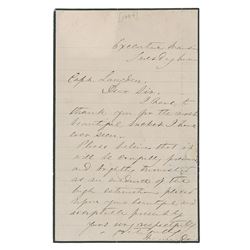 Executive Mansion
Tuesday
Capt. Langdon.
Dear Sir.
I have to
thank you for the most
beautiful basket I have
ever seen.
Please believe that it
will be carefully preserved
and highly
as an evidence of the
high estimation placed
upon your beautiful and
acceptable present by
yours very respectfully